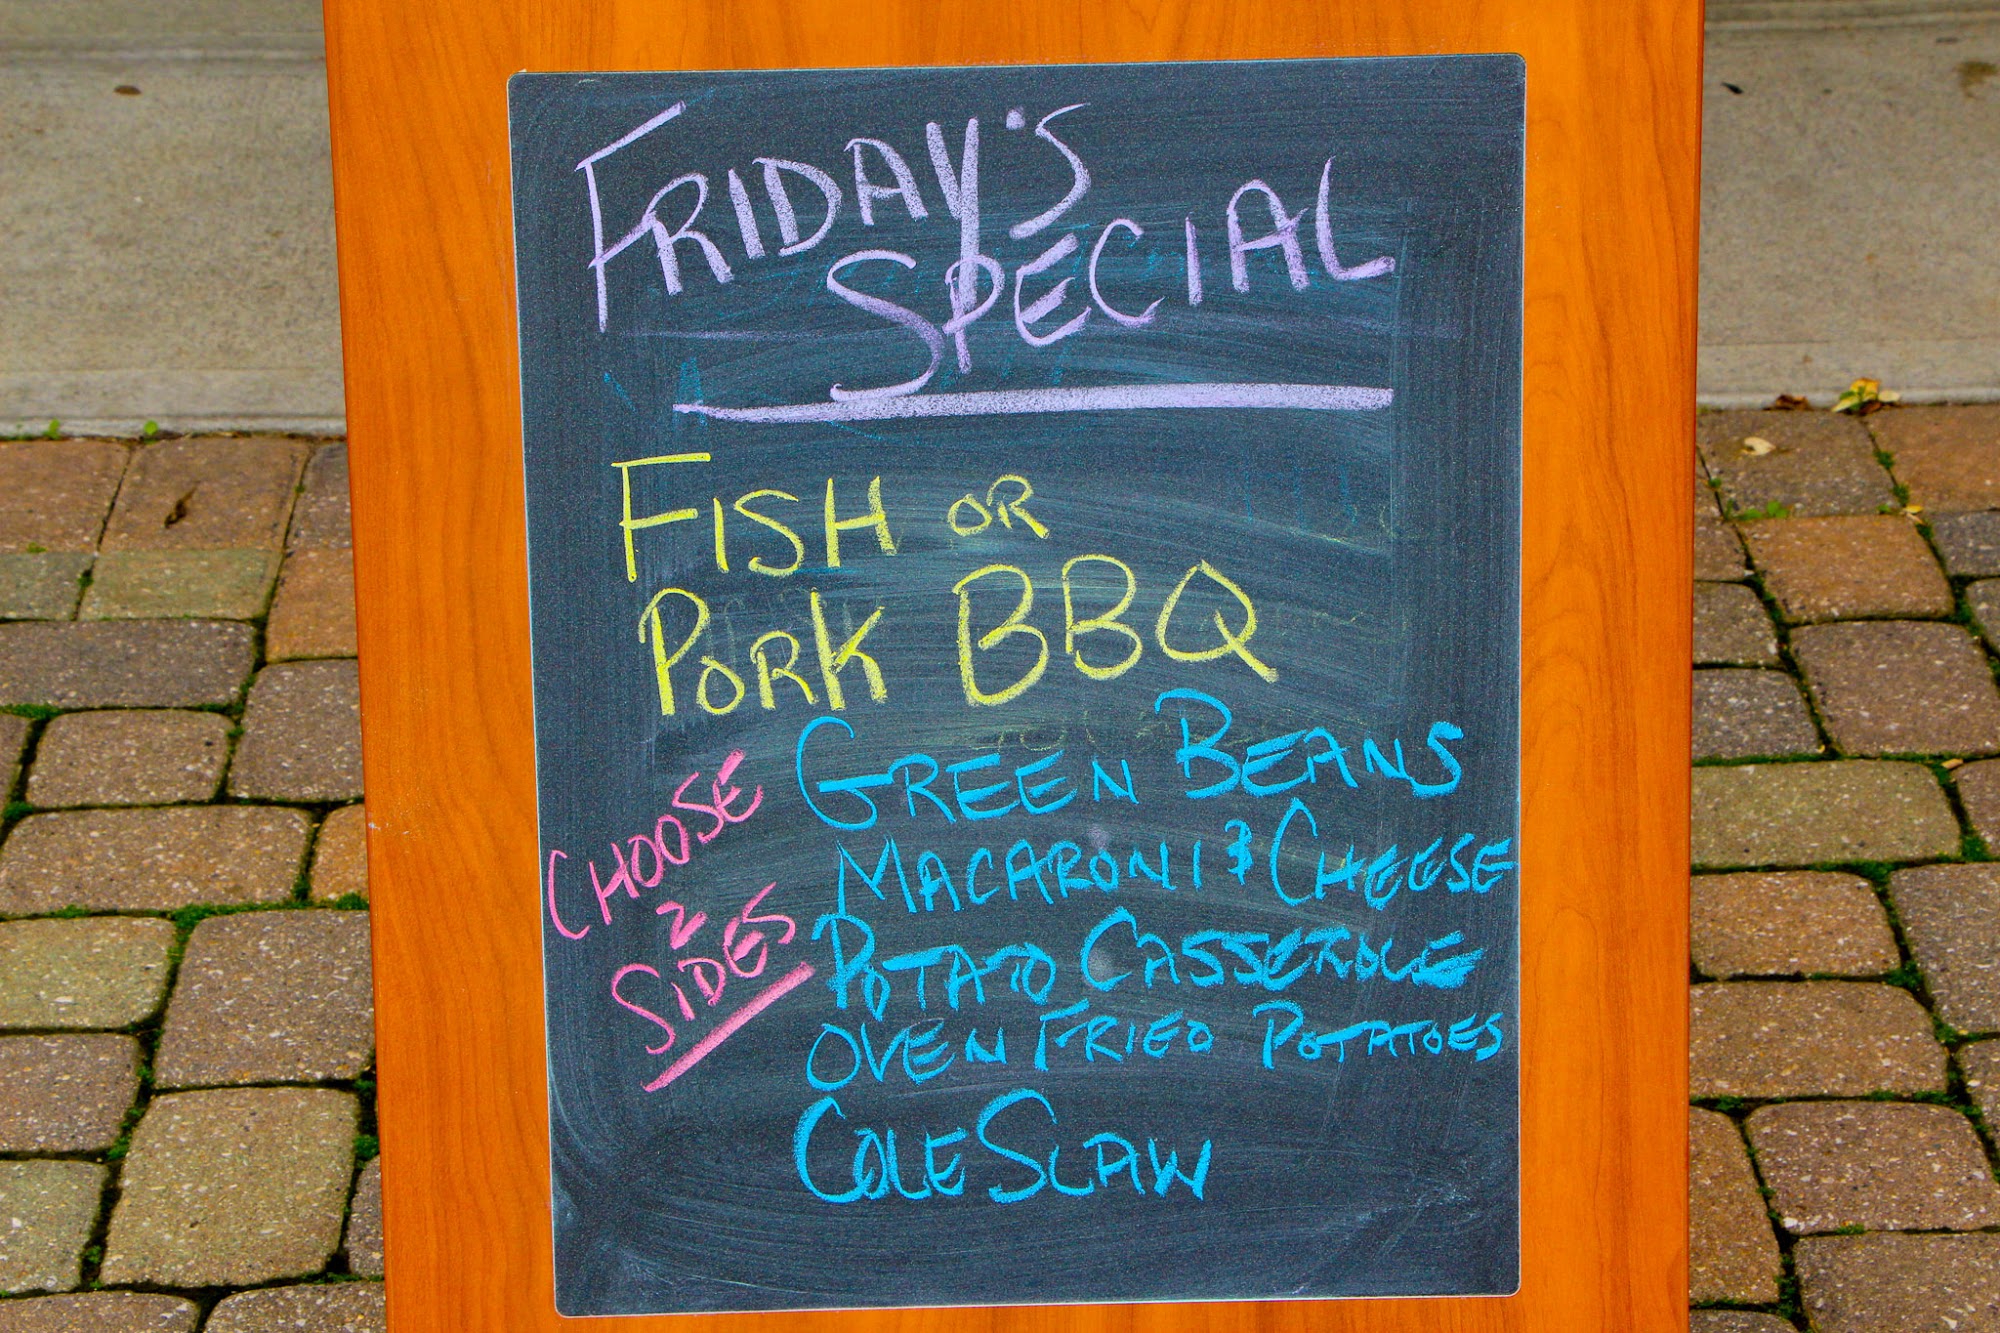 FRIDAY'S
SPECIAL
FISH OR
PORK BBQ
CHOOSE
2
SIDES
GREEN BEANS
MACARONI & CHEESE
POTATO CASSEROLE
OVEN FRIED POTATOES
COLE SLAW